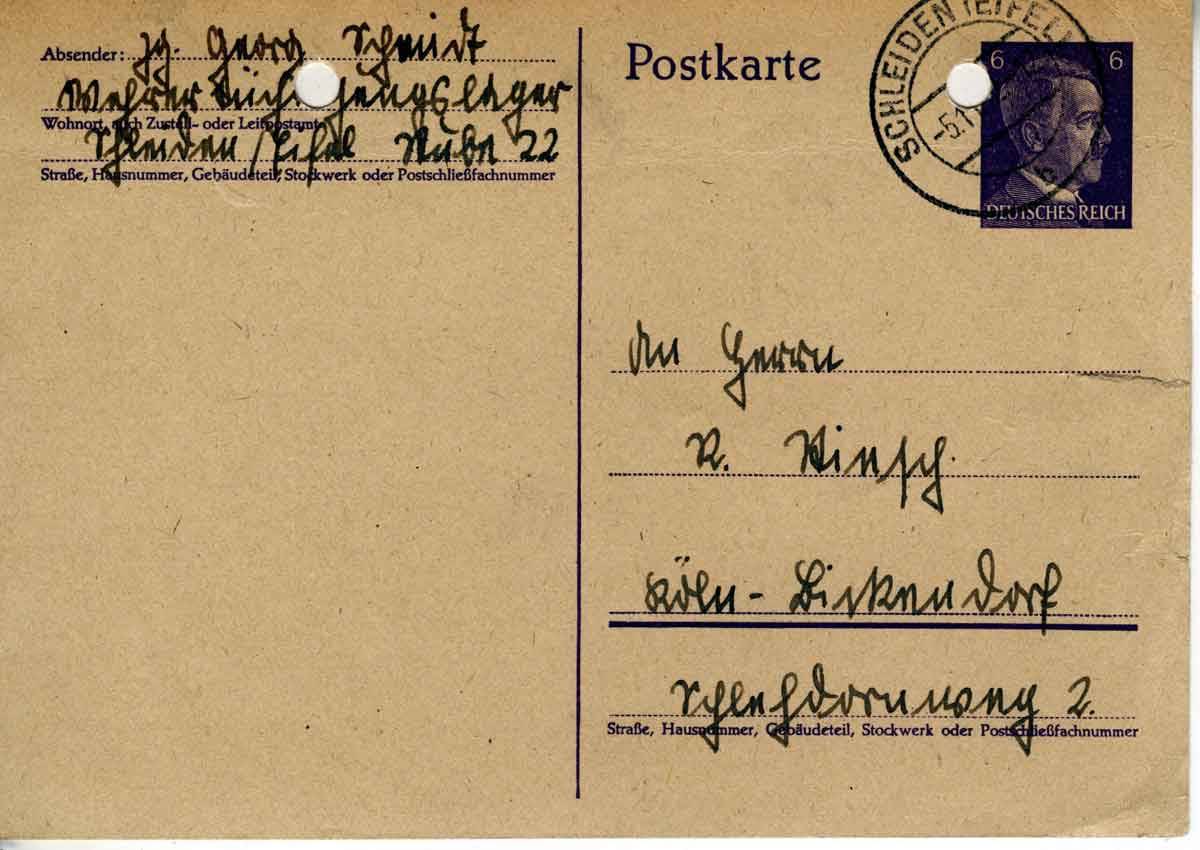 Absender: Jg. Georg Schmidt
Wohnort, auch Zustell- oder Leitpostamt
Schleiden / Eifel Stube 22
Straße, Hausnummer, Gebäudeteil, Stockwerk oder Postschließfachnummer
Postkarte
SCHLEIDEN (EIFEL)
-5.1
c
6 6
DEUTSCHES REICH
An Herrn
R.
Köln-Bickendorf
Schlehdornweg 2.
Straße, Hausnummer, Gebäudeteil, Stockwerk oder Postschließfachnummer